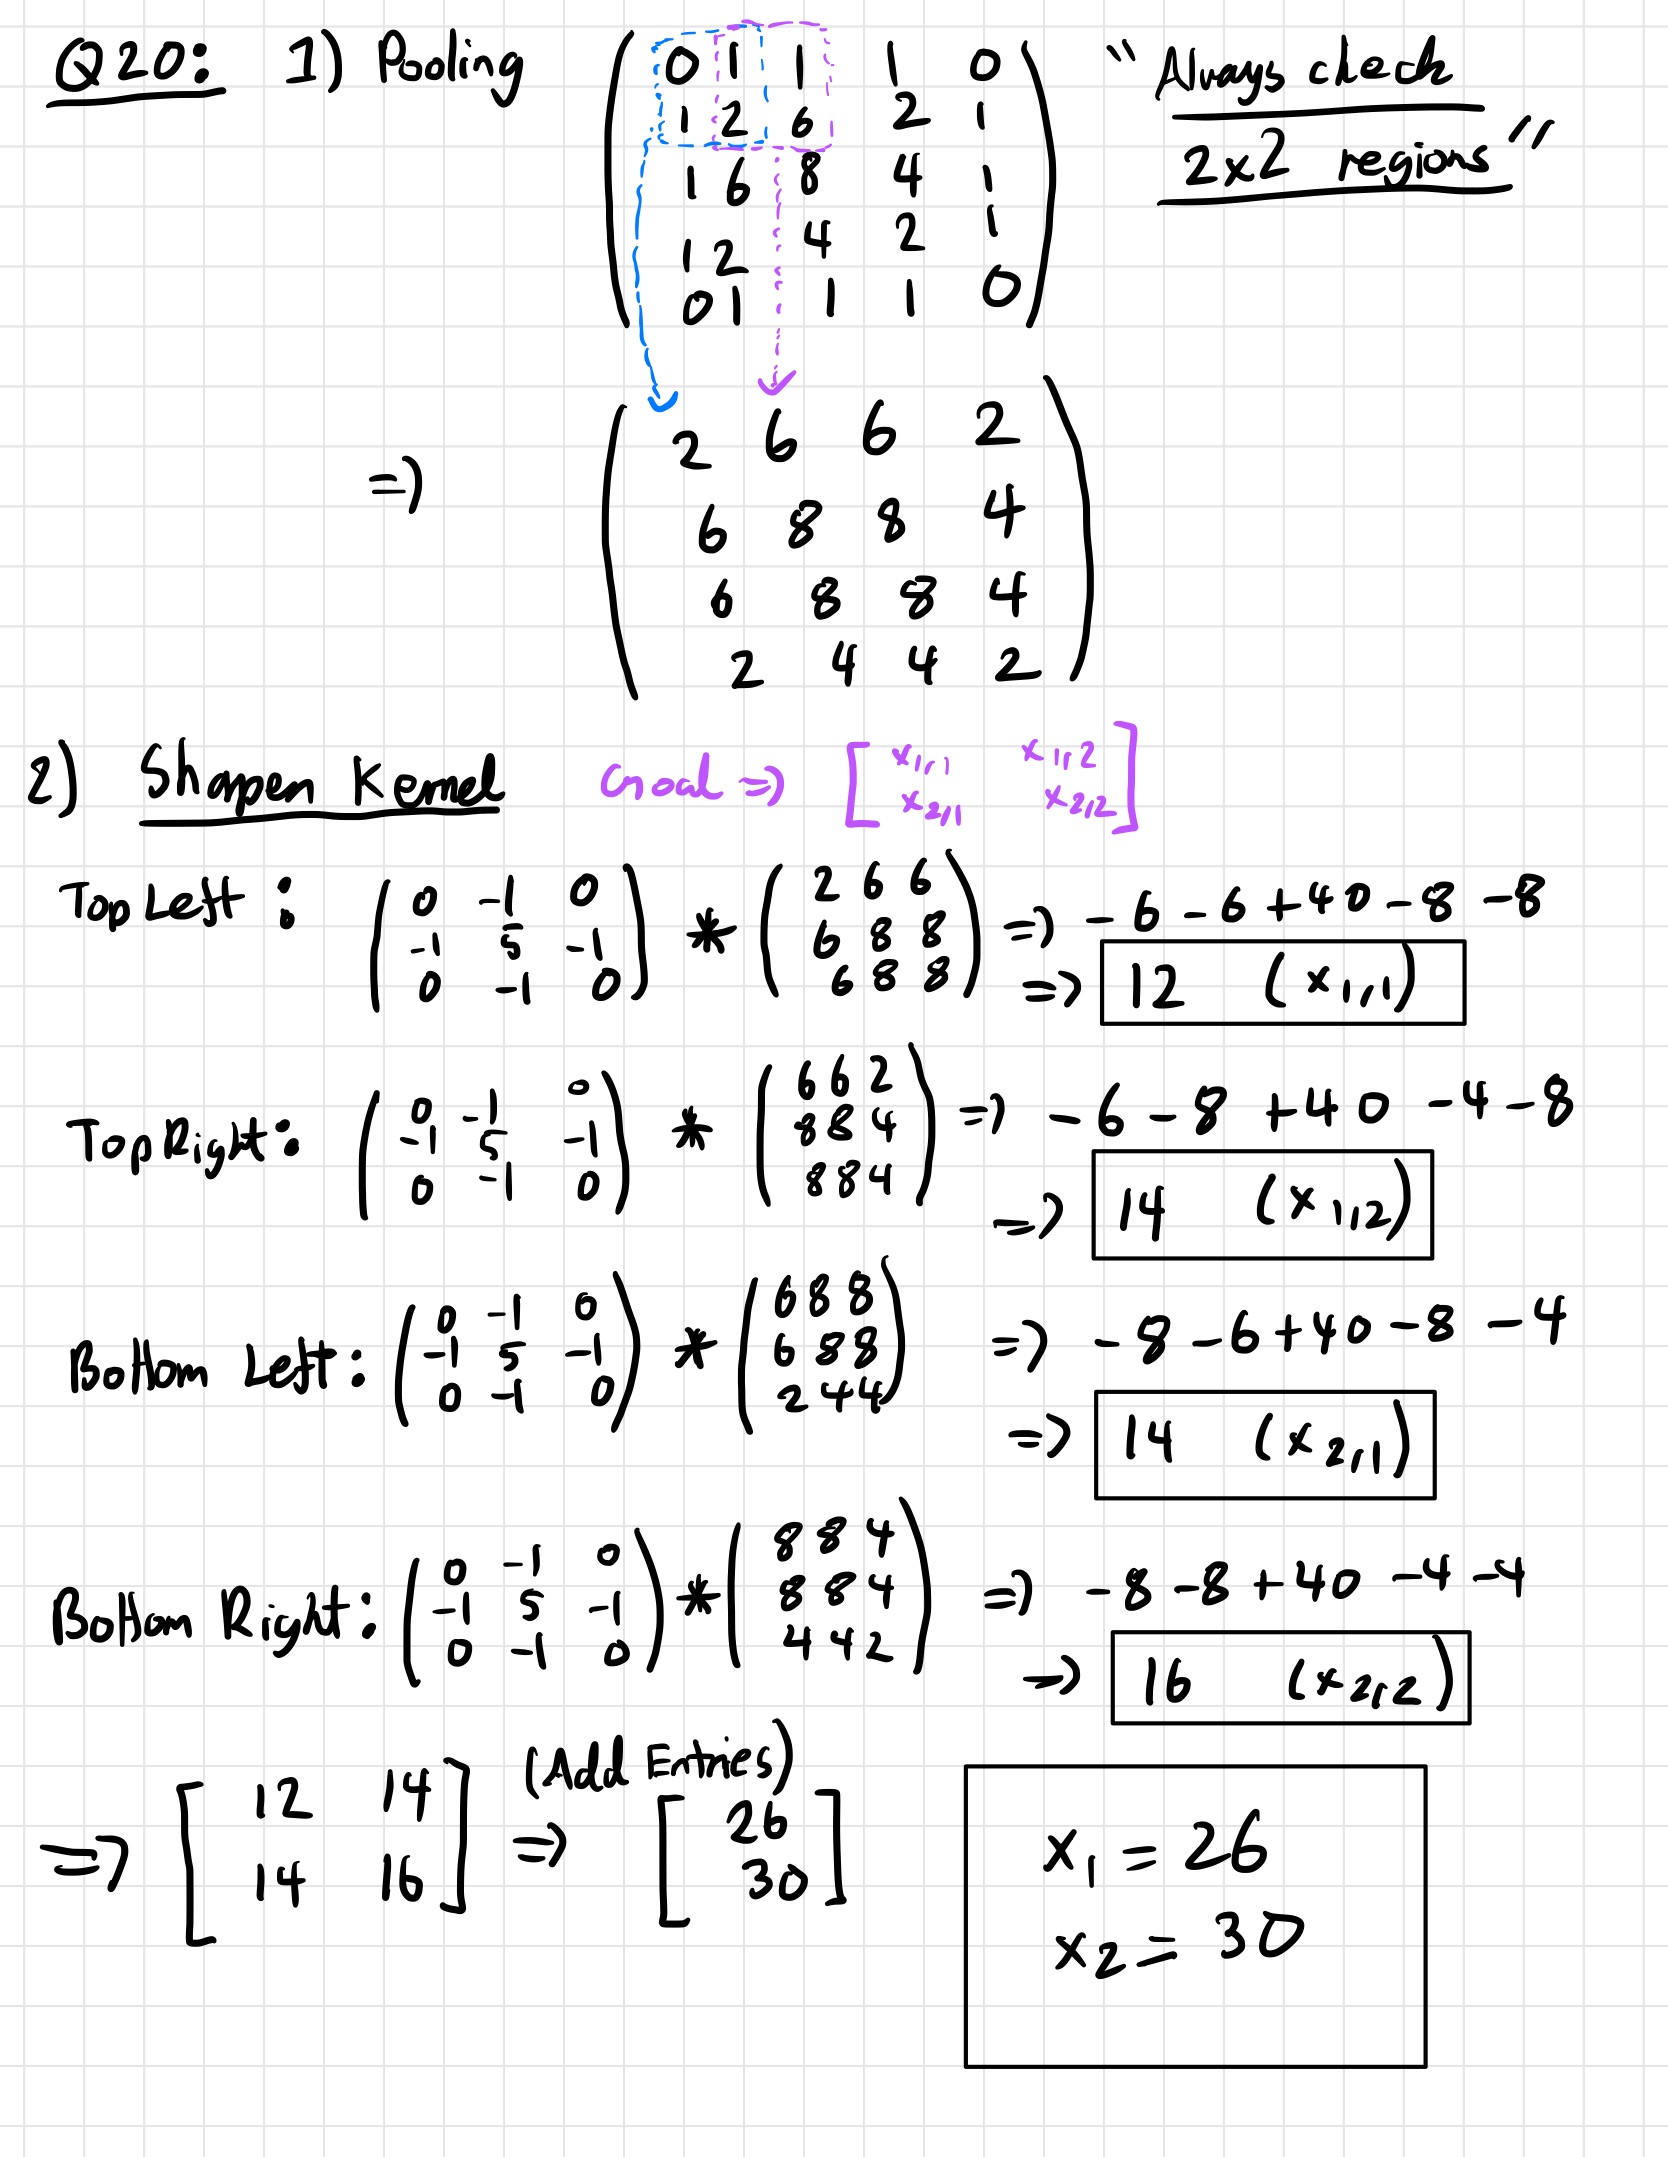 Q20: 1) Pooling
0 1 1 1 0
1 2 6 2 1
1 6 8 4 1
1 2 4 2 1
0 1 1 1 0
"Always check
2x2 regions"
=>
2 6 6 2
6 8 8 4
6 8 8 4
2 4 4 2
2) Sharpen Kernel Goal => [ x1,1 x1,2
x2,1 x2,2 ]
Top Left : ( 0 -1 0
-1 5 -1
0 -1 0 ) * ( 2 6 6
6 8 8
6 8 8 ) => -6-6+40-8-8
=> 12 (x1,1)
Top Right : ( 0 -1 0
-1 5 -1
0 -1 0 ) * ( 6 6 2
8 8 4
8 8 4 ) => -6-8+40-4-8
=> 14 (x1,2)
Bottom Left : ( 0 -1 0
-1 5 -1
0 -1 0 ) * ( 6 8 8
6 8 8
2 4 4 ) => -8-6+40-8-4
=> 14 (x2,1)
Bottom Right : ( 0 -1 0
-1 5 -1
0 -1 0 ) * ( 8 8 4
8 8 4
4 4 2 ) => -8-8+40-4-4
=> 16 (x2,2)
=> [ 12 14
14 16 ] (Add Entries)
=> [ 26
30 ]
x1 = 26
x2 = 30